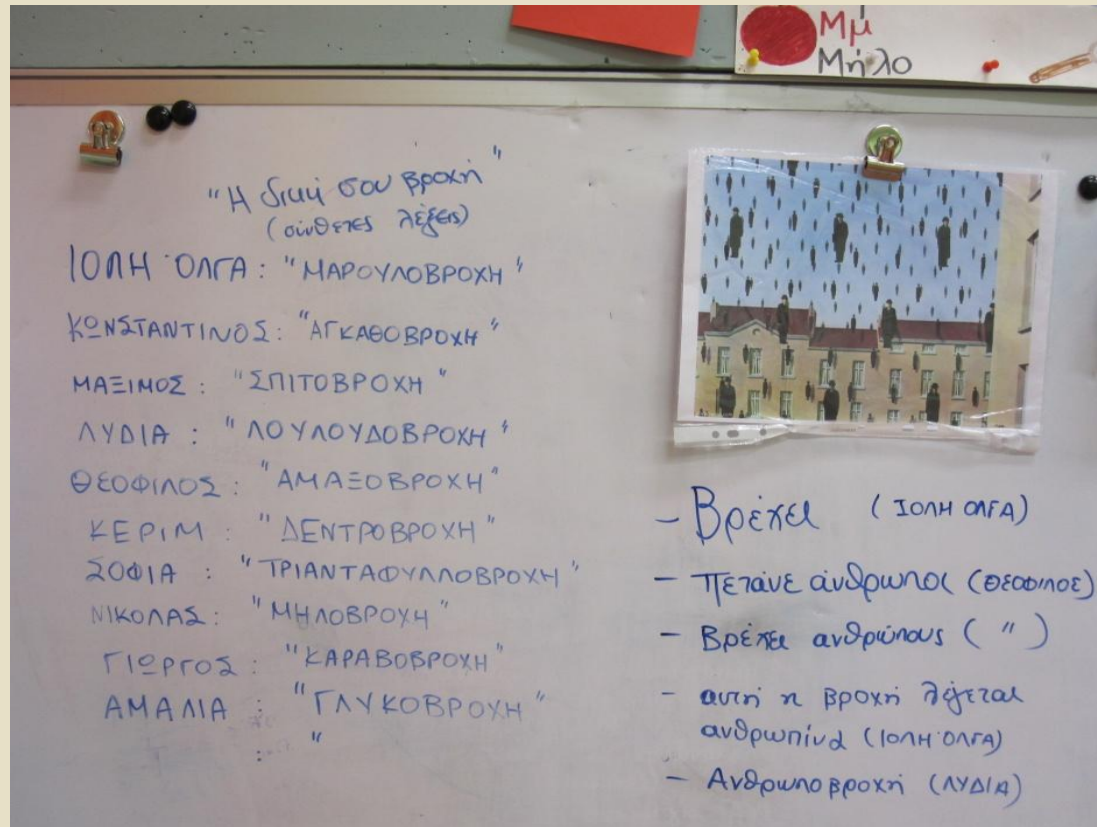 Μμ
Μήλο
"Η δική σου βροχή"
(σύνθετες λέξεις)
ΙΟΛΗ ΌΛΓΑ : "ΜΑΡΟΥΛΟΒΡΟΧΗ"
ΚΩΝΣΤΑΝΤΙΝΟΣ : "ΑΓΚΑΘΟΒΡΟΧΗ"
ΜΑΞΙΜΟΣ : "ΣΠΙΤΟΒΡΟΧΗ"
ΛΥΔΙΑ : "ΛΟΥΛΟΥΔΟΒΡΟΧΗ"
ΘΕΟΦΙΛΟΣ : "ΑΜΑΞΟΒΡΟΧΗ"
ΚΕΡΙΜ : "ΔΕΝΤΡΟΒΡΟΧΗ"
ΣΟΦΙΑ : "ΤΡΙΑΝΤΑΦΥΛΛΟΒΡΟΧΗ"
ΝΙΚΟΛΑΣ : "ΜΗΛΟΒΡΟΧΗ"
ΓΙΩΡΓΟΣ : "ΚΑΡΑΒΟΒΡΟΧΗ"
ΑΜΑΛΙΑ : "ΓΛΥΚΟΒΡΟΧΗ"
: "
- Βρέχει (ΙΟΛΗ ΟΛΓΑ)
- Πετάνε άνθρωποι (ΘΕΟΦΙΛΟΣ)
- Βρέχει ανθρώπους ( " )
- αυτή η βροχή λέγεται
ανθρωπίνα (ΙΟΛΗ ΌΛΓΑ)
- Ανθρωποβροχή (ΛΥΔΙΑ)